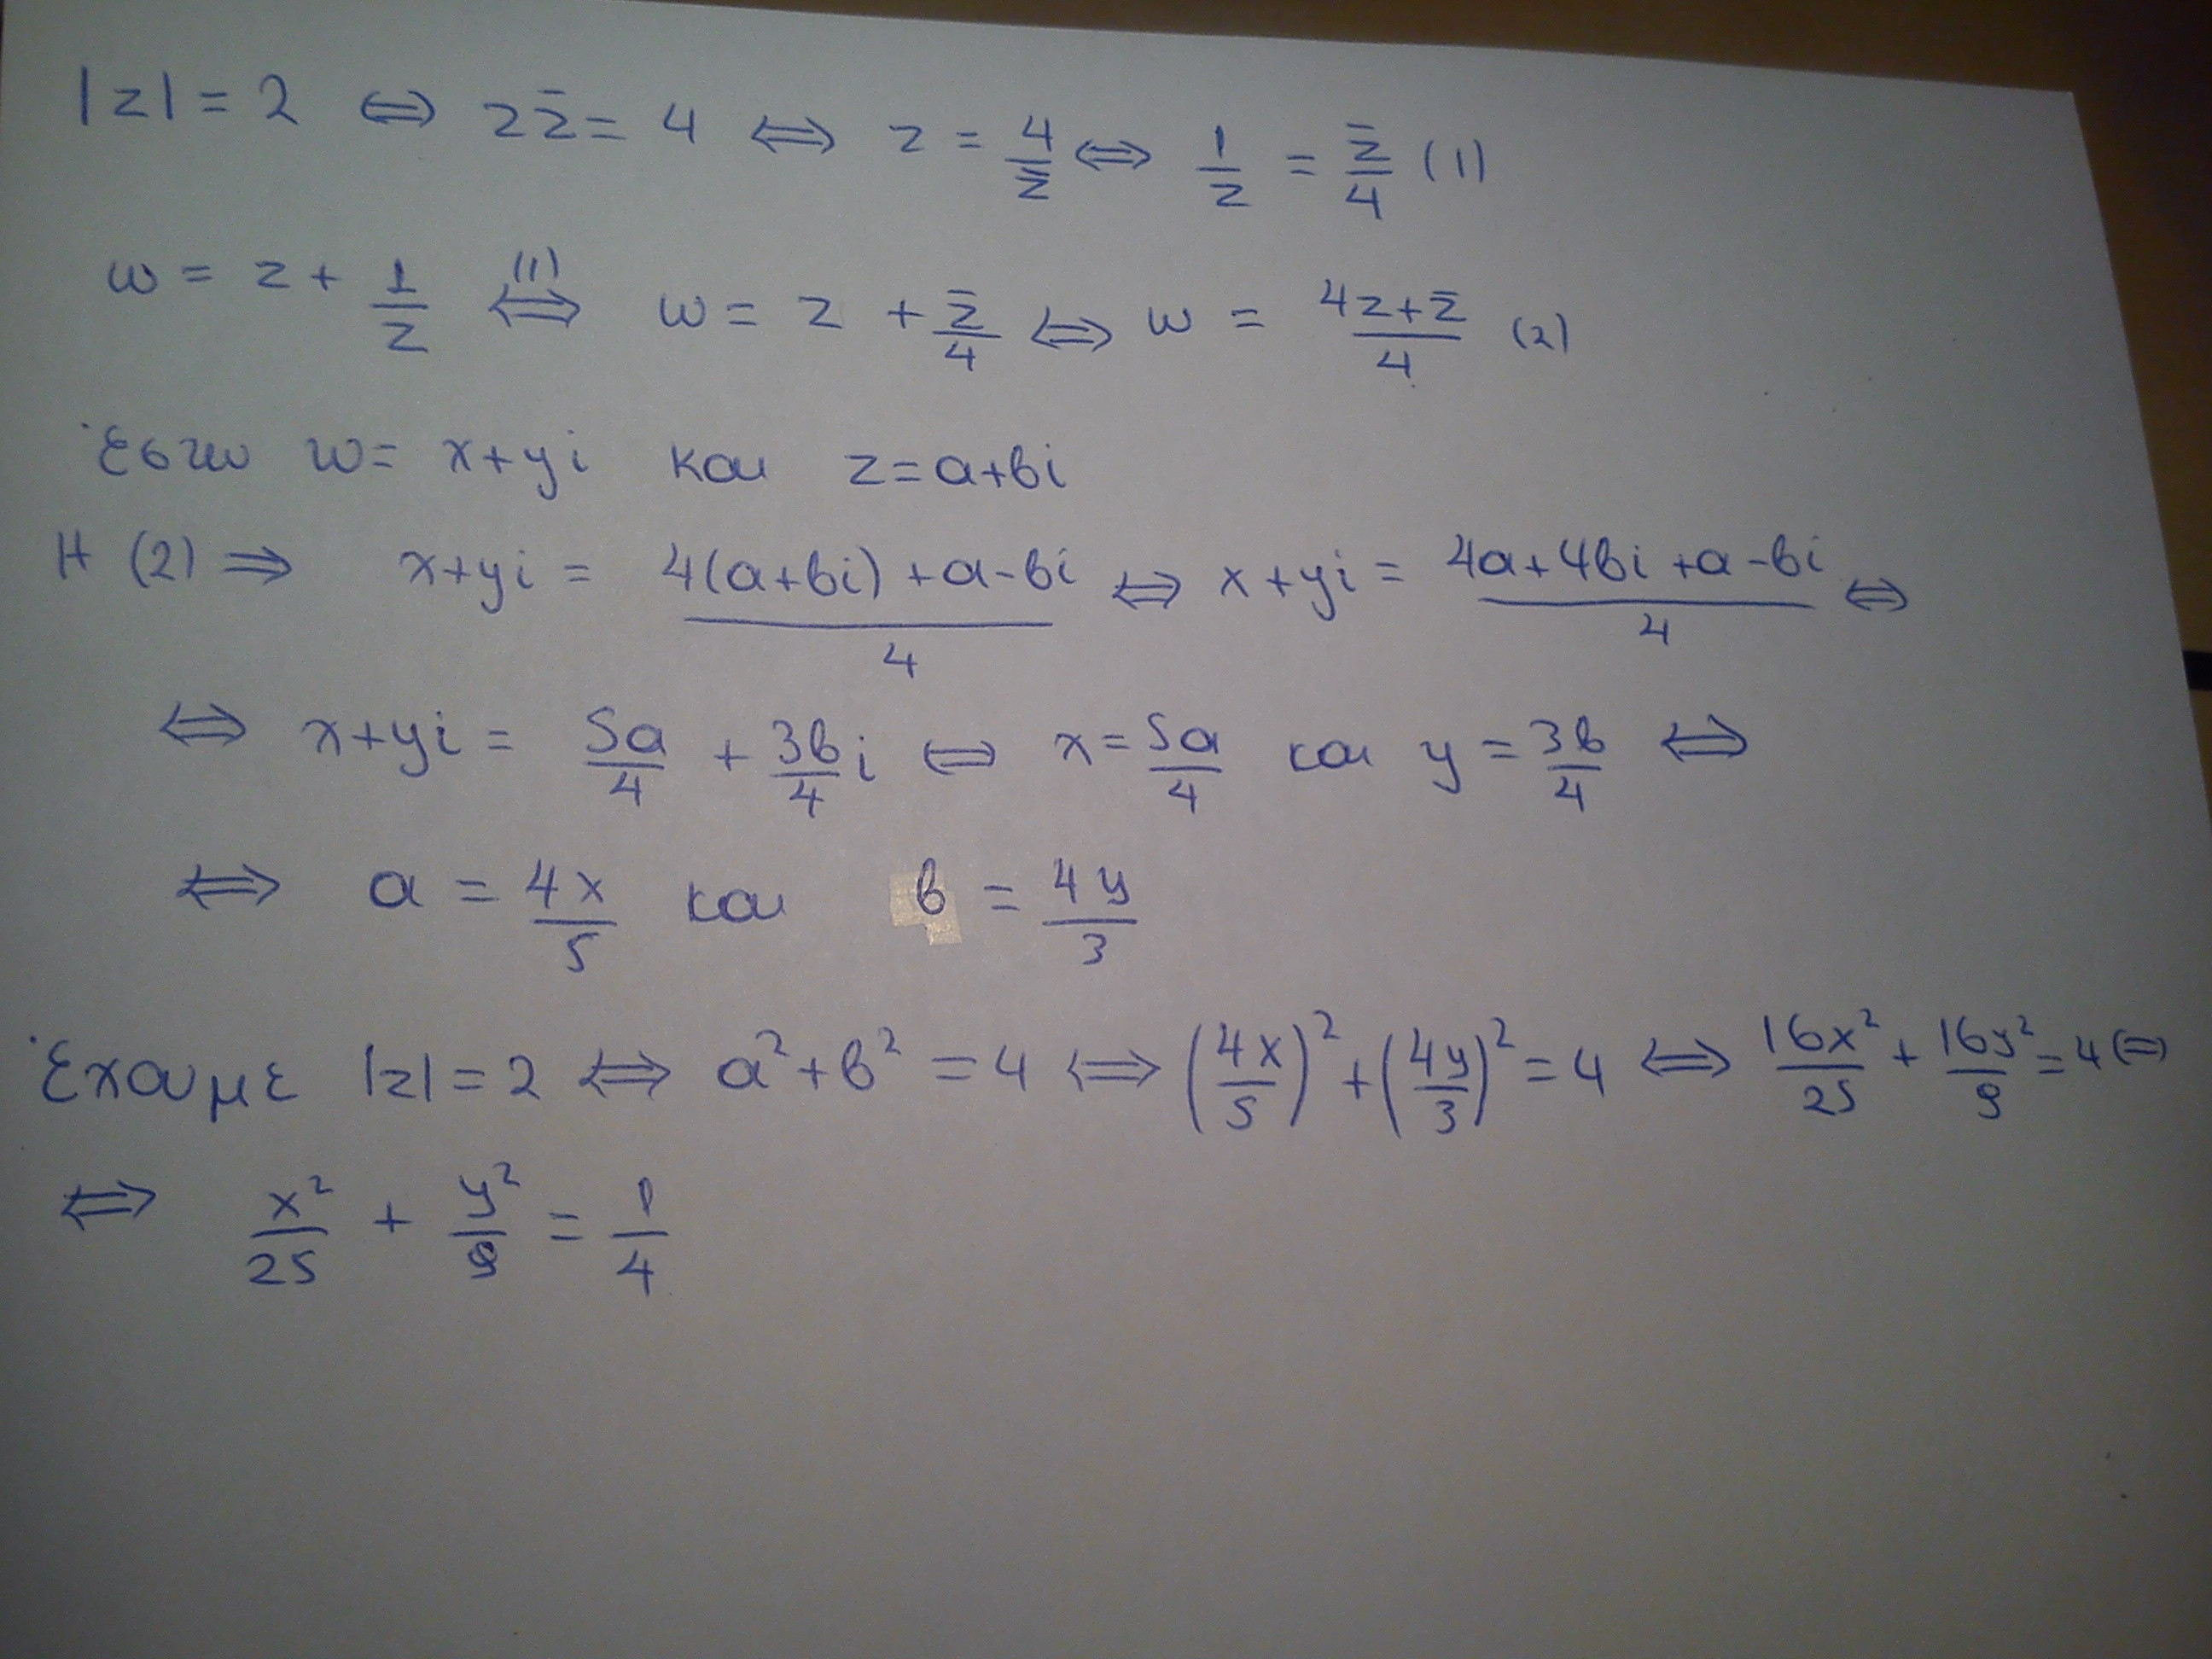 |z| = 2 ⇔ zz̄ = 4 ⇔ z = 4/z̄ ⇔ 1/z = z̄/4 (1)
w = z + 1/z ⇔(1) w = z + z̄/4 ⇔ w = (4z+z̄)/4 (2)
Έστω w = x+yi και z = α+βi
Η (2) ⇒ x+yi = (4(α+βi)+α-βi)/4 ⇔ x+yi = (4α+4βi+α-βi)/4 ⇔
⇔ x+yi = 5α/4 + 3β/4 i ⇔ x = 5α/4 και y = 3β/4 ⇔
⇔ α = 4x/5 και β = 4y/3
Έχουμε |z| = 2 ⇔ α² + β² = 4 ⇔ (4x/5)² + (4y/3)² = 4 ⇔ 16x²/25 + 16y²/9 = 4 ⇔
⇔ x²/25 + y²/9 = 1/4